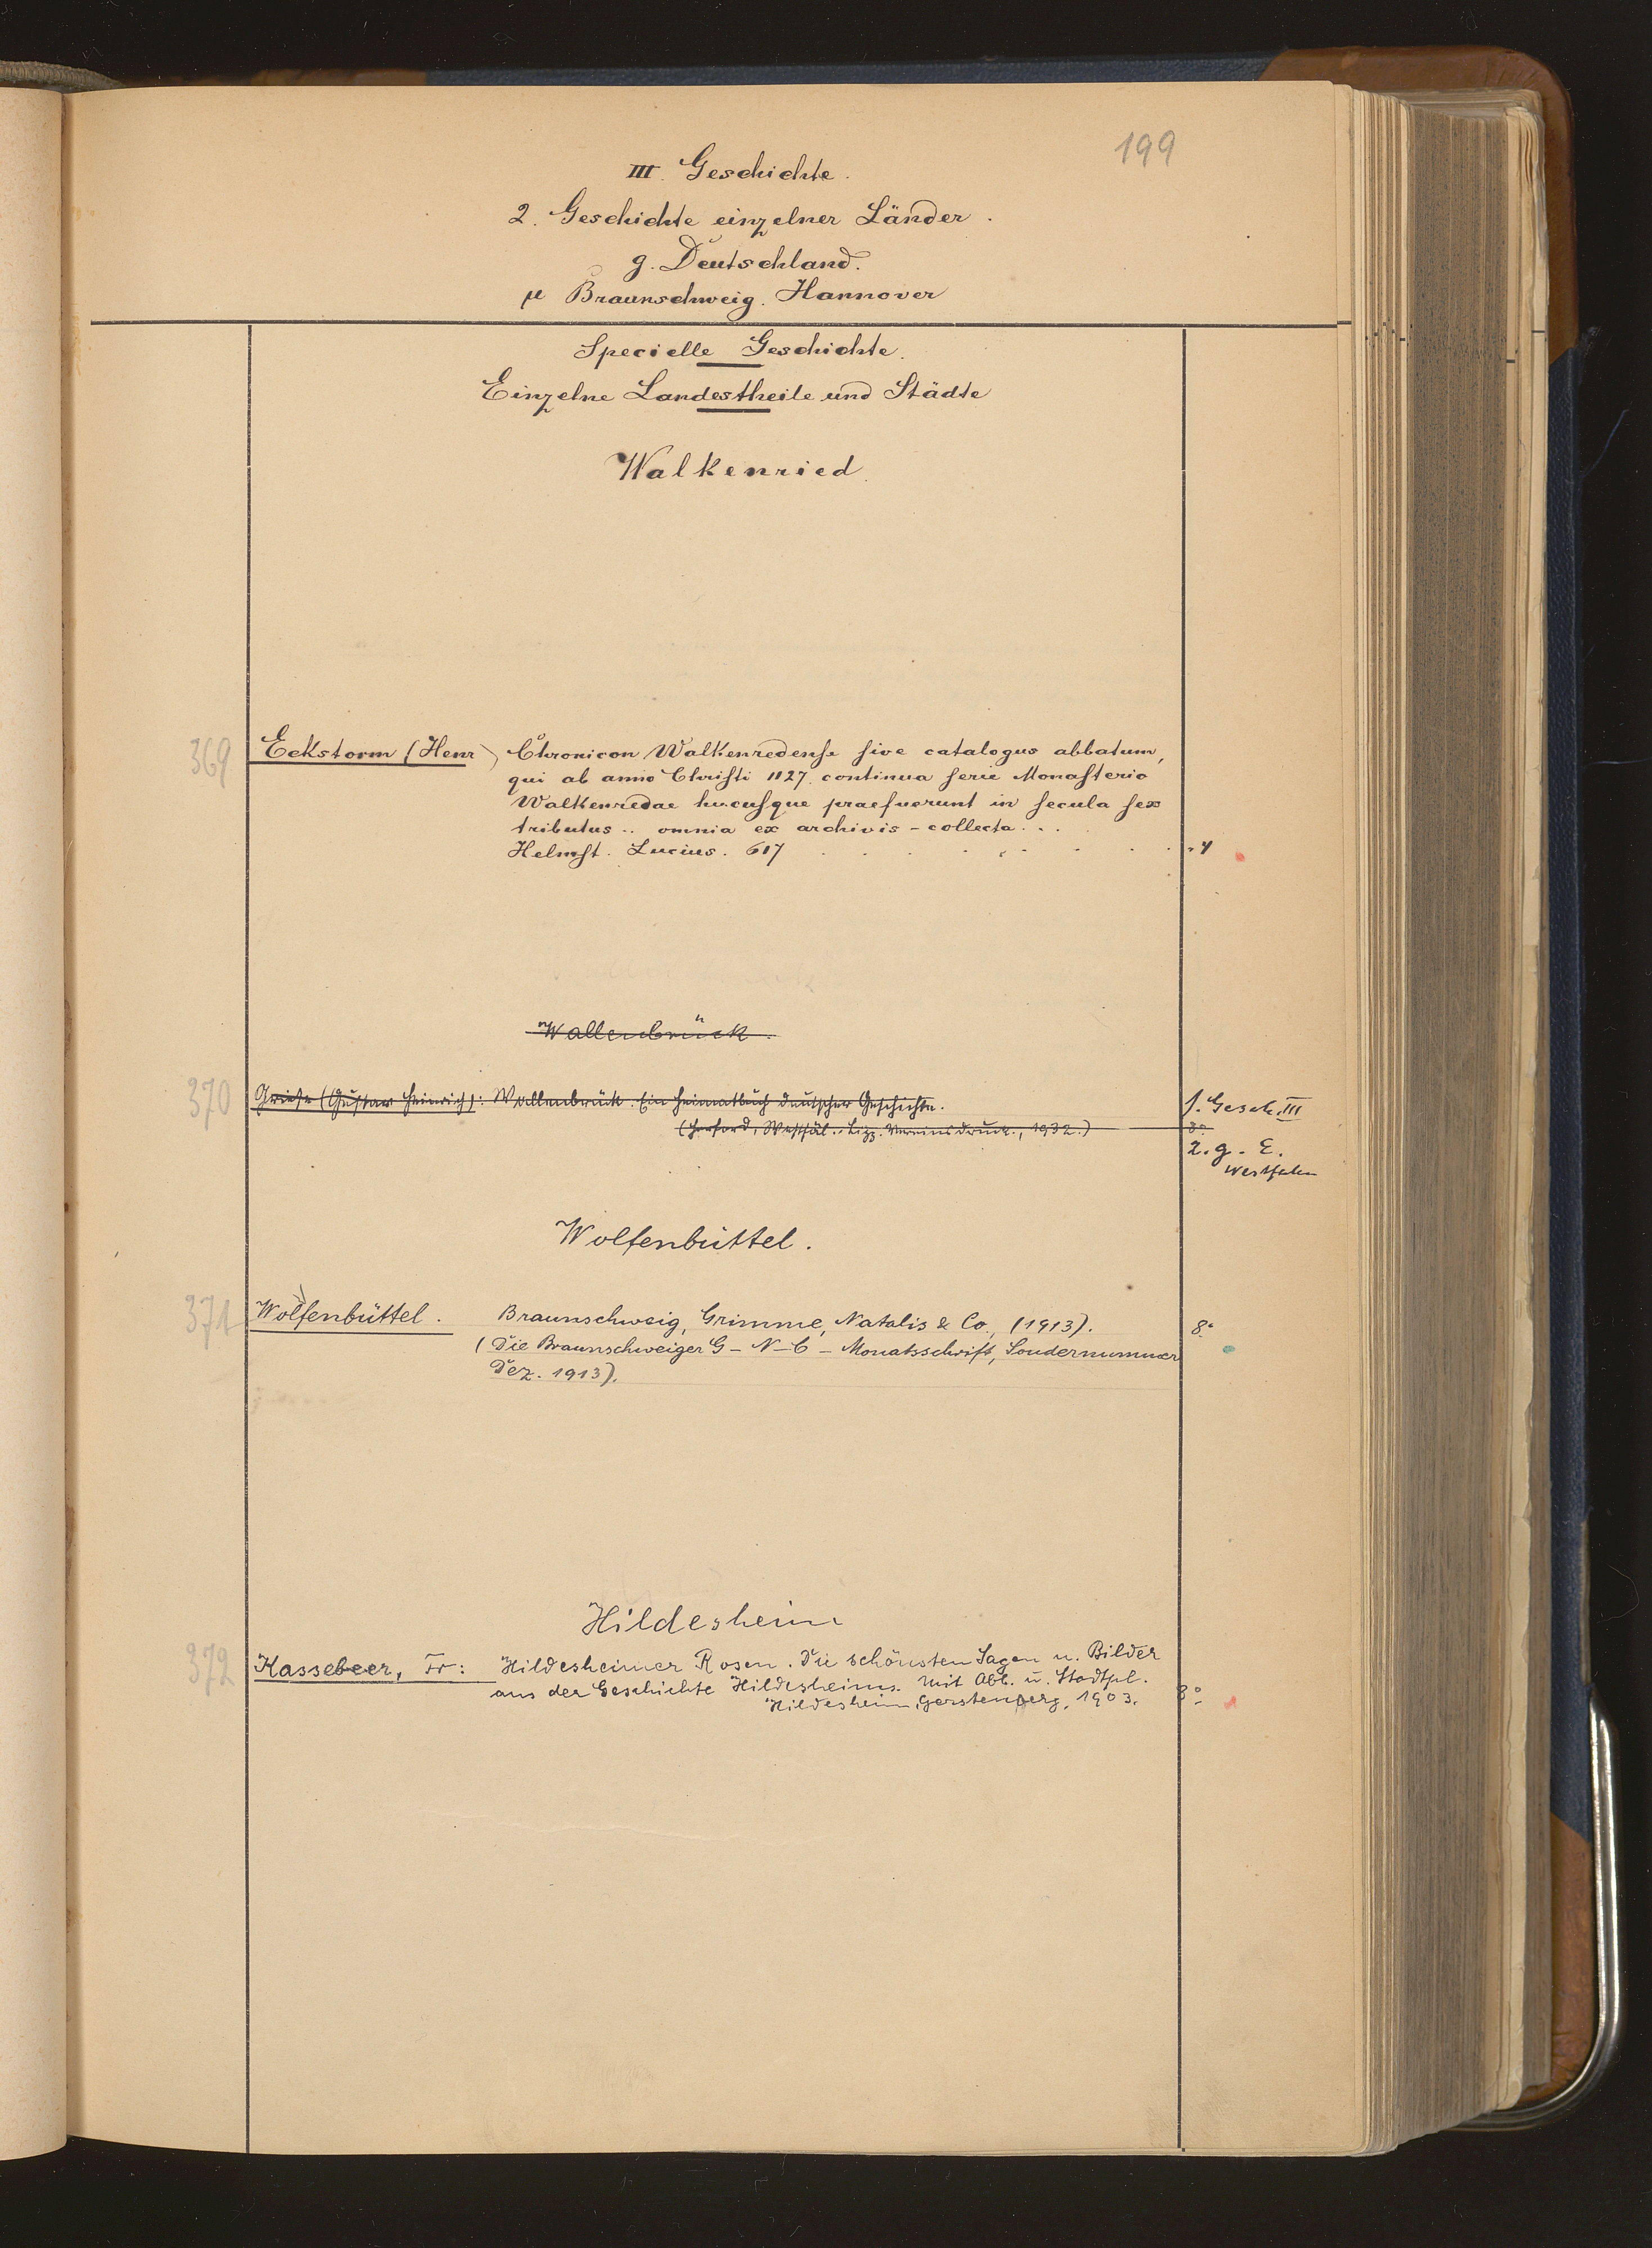 199
III. Geschichte.
2. Geschichte einzelner Länder.
g. Deutschland.
μ Braunschweig. Hannover
Specielle Geschichte.
Einzelne Landestheile und Städte
Walkenried.
369 Eckstorm (Henr) Chronicon Walkenredense sive catalogus abbatum,
qui ab anno Christi 1127. continua serie Monasterio
Walkenredae hucusque praefuerunt in secula sex
tributus .. omnia ex archivis - collecta ...
Helmst. Lucius. 617 . . . . . . . . 4
Wallenbrück.
370 Griese (Gustav Heinrich): Wallenbrück. Ein Heimatbuch deutscher Geschichte. s. Gesch. III
(Herford, Westfäl. Vereinsdruck., 1932.) 8°
2. g. E.
Westfalen
Wolfenbüttel.
371 Wolfenbüttel. Braunschweig, Grimme, Natalis & Co., (1913). 8°
(Die Braunschweiger G-N-C-Monatsschrift, Sondernummer
Dez. 1913).
Hildesheim
372 Kassebeer, Fr: Hildesheimer Rosen. Die schönsten Sagen u. Bilder
aus der Geschichte Hildesheims. Mit Abb. u. Stadtpl.
Hildesheim, Gerstenberg, 1903. 8°